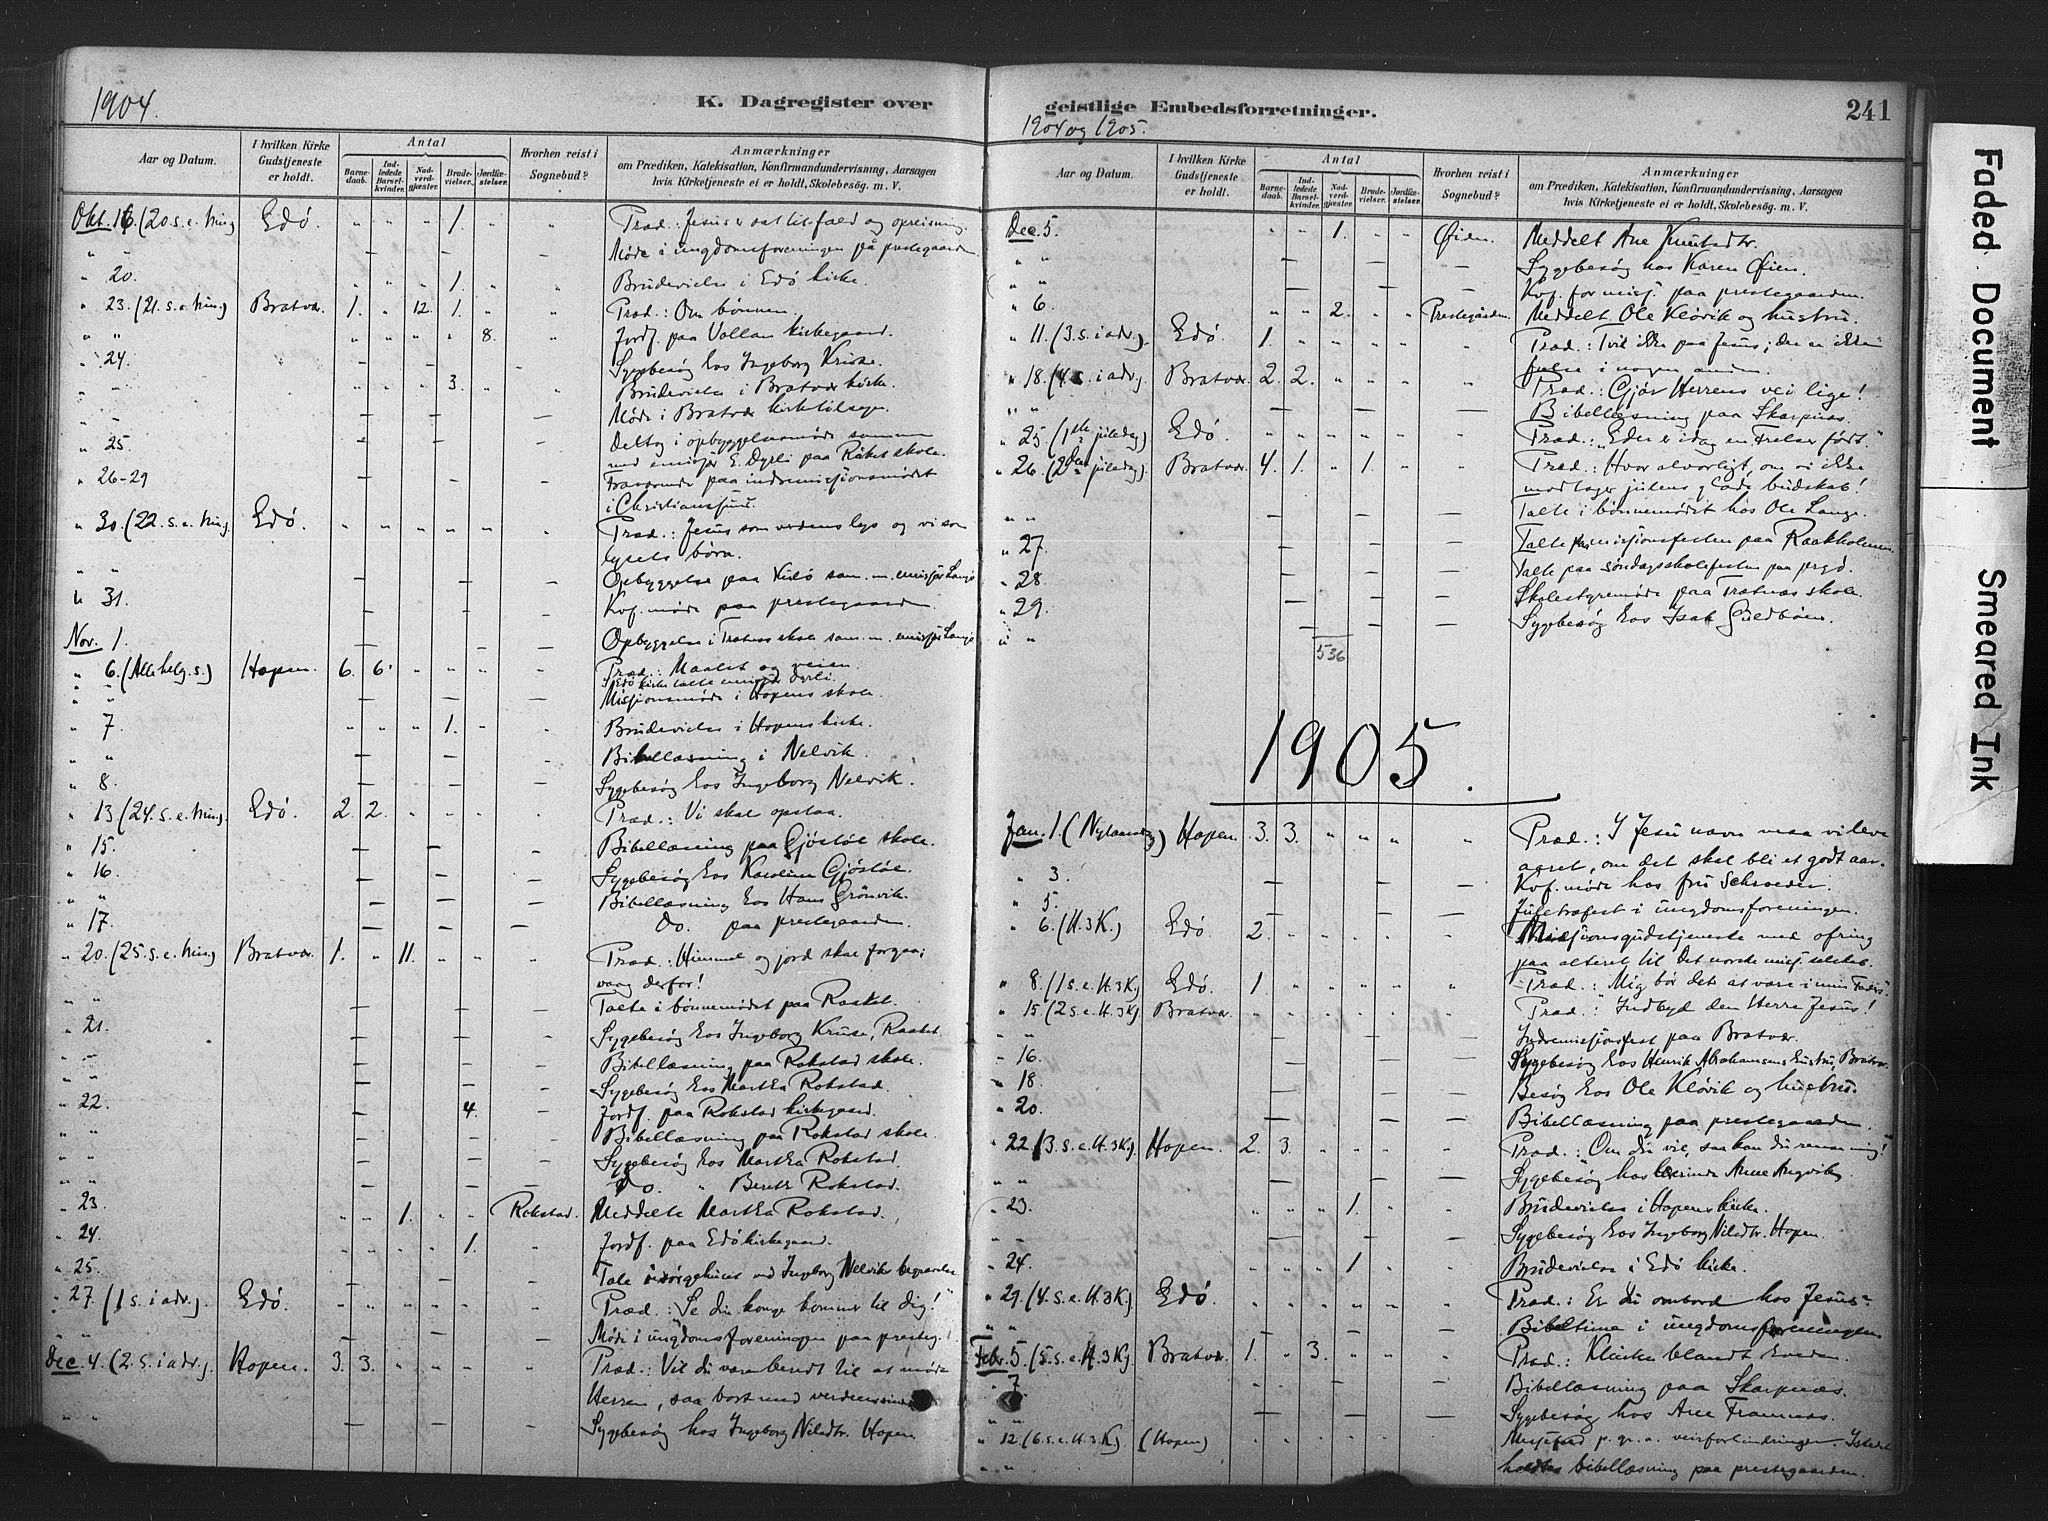 1904.
K. Dagregister over
Aar og Datum.
I hvilken Kirke Gudstjeneste er holdt.
Antal
Barnedaab.
Indledede Barselkvinder.
Nadverdgjæster.
Brudevielser.
Jordfæstelser.
Hvorhen reist i Sognebud?
Anmærkninger
om Prædiken, Katekisation, Konfirmandundervisning, Aarsagen
hvis Kirketjeneste ei er holdt, Skolebesøg. m. V.
Okt. 16 (20 s. e. trin) Edö " " " 1. " " Præd.: Jesus er sat til fald og opreisning.
" " — — — Møde i ungdomsforeningen på prestegaarden
" 20. " " " 1. " " Brudevielse i Edö kirke
" 23. (21. s. e. trin.) Bratvær. 1. " 12. 1. " " Præd.: Om bønnen.
" " " " " " 8. " Jordf. paa Vollan kirkegaard.
" 24. — — — Sygebesøg hos Ingeborg Kruse.
" " " " " 3. " " Brudevielse i Bratvær kirke.
" " — — — Møde i Bratvær
" 25 — — — Deltog i opbyggelsesmøde sammen
med emissær E. Dyrli paa Råket skole.
" 26-29 — — — Fraværende paa indremissjonsmødet
i Christianssund.
" 30. (22. s. e. trin). Edö. " " " " " " Præd.: Jesus som verdens lys og vi som
lysets børn.
" " — — — Opbyggelse paa Kulö sam. m. emissær Langö
" 31. — — — Kvf. møde paa prestegaarden.
Nov. 1. — — — Opbyggelse i Trætnæs skole sam. m. emissær Langö
" 6 (Alle helg. s.) Hopen. 6. 6. " " " " Præd.: Maalet og veien.
I Edö kirke talte emissær Dyrli.
" " — — — Missjonsmøde i Hopens skole.
" 7 " " " 1. " " Brudevielse i Hopens kirke.
" " — — — Bibellæsning i Nelvik.
" 8. — — — Sygebesøg hos Ingeborg Nelvik.
" 13 (24. s. e. trin). Edö. 2. 2. " " " " Præd.: Vi skal opstaa.
" 15. — — — Bibellæsning paa Gjöstöl skole.
" 16 — — — Sygebesøg hos Karoline Gjöstöl.
" " — — — Bibellæsning hos Hans Grönvik.
" 17. — — — Do. paa prestegaarden
" 20. (25. s. e. trin) Bratvær. 1. " 11. " " " Præd.: Himmel og jord skal forgaa;
vaag derfor!
" " — — — Talte i bønnemødet paa Raaket.
" 21. — — — Sygebesøg hos Ingeborg Kruse, Raaket.
" " — — — Bibellæsning paa Rokstad skole.
" " — — — Sygebesøg hos Martha Rokstad.
" 22. — 4. — Jordf. paa Rokstad kirkegaard.
" " — — — Bibellæsning paa Rokstad skole.
" " — — — Sygebesøg hos Martha Rokstad.
" " — — — Do. " Berit Rokstad.
" 23 " " 1. " " Rokstad. Meddelte Martha Rokstad.
" 24. 1. " Jordf. paa Edö kirkegaard.
" 25. — — — Tale i sørgehuset ved Ingeborg Nelviks begravelse.
" 27. (1 s. i adv.) Edö. " " " " " " Præd.: "Se din konge kommer til dig!"
" " — — — Møde i ungdomsforeningen paa presteg.
Dec. 4. (2. s. i adv.) Hopen. 3. 3. " " " " Præd.: Vil du være beredt til at møde
Herren, saa bort med
" " — — — Sygebesøg hos Ingeborg Nilsdtr. Hopen
geistlige Embedsforretninger.
241
1904 og 1905.
Aar og Datum.
I hvilken Kirke Gudstjeneste er holdt.
Antal
Barnedaab.
Indledede Barselkvinder.
Nadverdgjæster.
Brudevielser.
Jordfæstelser.
Hvorhen reist i Sognebud?
Anmærkninger
om Prædiken, Katekisation, Konfirmandundervisning, Aarsagen
hvis Kirketjeneste ei er holdt, Skolebesøg. m. V.
Dec. 5. " " 1. " " Øien. Meddelt Ane Knutsdtr.
" " — — — Sygebesøg hos Karen Øien.
" " — — — Kvf. for misj. paa prestegaarden.
" 6. " " 2. " " Prestegården. Meddelt Ole Klövik og hustru.
" 11. (3. s. i adv.) Edö. 1. " " " " " Præd.: Tvil ikke paa Jesus; der er ikke
frelse i nogen anden.
" 18. (4. s. i adv. Bratvær. 2. 2. " " " " Præd.: Gjør Herrens vei lige!
" " — — — Bibellæsning paa Skarpnæs.
" 25. (1ste juledag) Edö. " " " " " " Præd.: "Eder er idag en Frelser født."
" 26. (2den juledag). Bratvær. 4. 1. " 1. " " Præd.: Hvor alvorligt, om vi ikke
modtager julens glade budskab!
" " — — — Talte i bønnemødet hos Ole Lange.
" 27. — — — Talte paa missjonsfesten paa Raakholmen
" 28. — — — Talte paa søndagsskolefesten paa prgd.
" 29. — — — Skolestyremøde paa Trætnæs skole.
" " — — — Sygebesøg hos Isak Guldböien.
536
1905.
Jan. 1. (Nytaarsdag) Hopen. 3. 3. " " " " Præd.: I Jesu navn maa vi leve
aaret, om det skal bli et godt aar.
" 3. — — — Kvf. møde hos fru Schroeder.
" 5. — — — Juletræfest i ungdomsforeningen.
" 6. (H. 3 K.) Edö. 2. " " " " " Missjonsgudstjeneste med ofring
paa alteret til Det norske misj. selskab.
" 8. (1 s. e. H. 3 K) Edö. 1. " " " " " Præd.: "Mig bør det at være i min Faders"
" 15. (2 s. e. H. 3 K). Bratvær. " " " " " " Præd.: Indbyd den Herre Jesus!
" " — — — Indremissjonsfest paa Bratvær.
" 16. — — — Sygebesøg hos Henrik Abrahamsens hustru, Bratvær.
" 18. — — — Besøg hos Ole Klövik og hustru.
" 20. — — — Bibellæsning paa prestegaarden.
" 22. (3. s. e. H. 3 K). Hopen. 2. 3. " " " " Præd.: "Om du vil, saa kan du rense mig!"
" " — — — Sygebesøg hos Anne Angvik.
" 23. " " " 1. " " Brudevielse i Hopens kirke.
" " — — — Sygebesøg hos Ingeborg Nilsdtr. Hopen.
" 24. " " " 1. " " Brudevielse i Edö kirke.
" 29. (4. s. e. H. 3 K.) Edö. " " " " " " Præd.: Er du ombord hos Jesus?
" " — — — Bibeltime i ungdomsforeningen
Febr. 5. (5. s. e. H. 3 K). Bratvær. 1. " 3. " " " Præd.: Klinte blandt hveden.
" 7. — — — Bibellæsning paa Skarpnæs.
" " — — — Sygebesøg hos Ane
" 12. (6. s. e. H. 3 K.) (Hopen) " " " " " " Messefald p. gr. a. veirforhindringer. Istedet
" " holdtes bibellæsning paa prestegaarden.
Faded Document
Smeared Ink